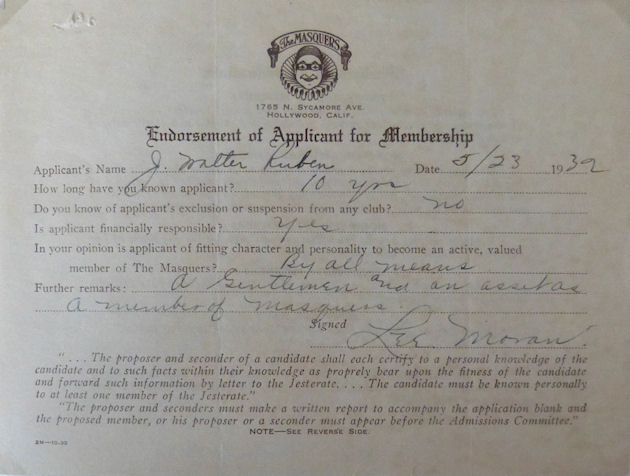 The MASQUERS
1765 N. SYCAMORE AVE.
HOLLYWOOD, CALIF.
Endorsement of Applicant for Membership
Applicant's Name J. Walter Ruben Date 5/23 1932
How long have you known applicant? 10 yrs
Do you know of applicant's exclusion or suspension from any club? no
Is applicant financially responsible? Yes
In your opinion is applicant of fitting character and personality to become an active, valued
member of The Masquers? By all means
Further remarks: A Gentlemen and an asset as
a member of Masquers.
Signed
Lee Moran.
". . . The proposer and seconder of a candidate shall each certify to a personal knowledge of the
candidate and to such facts within their knowledge as proprely bear upon the fitness of the candidate
and forward such information by letter to the Jesterate. . . . The candidate must be known personally
to at least one member of the Jesterate."
"The proposer and seconders must make a written report to accompany the application blank and
the proposed member, or his proposer or a seconder must appear before the Admissions Committee."
NOTE—SEE REVERSE SIDE.
2M—10-30